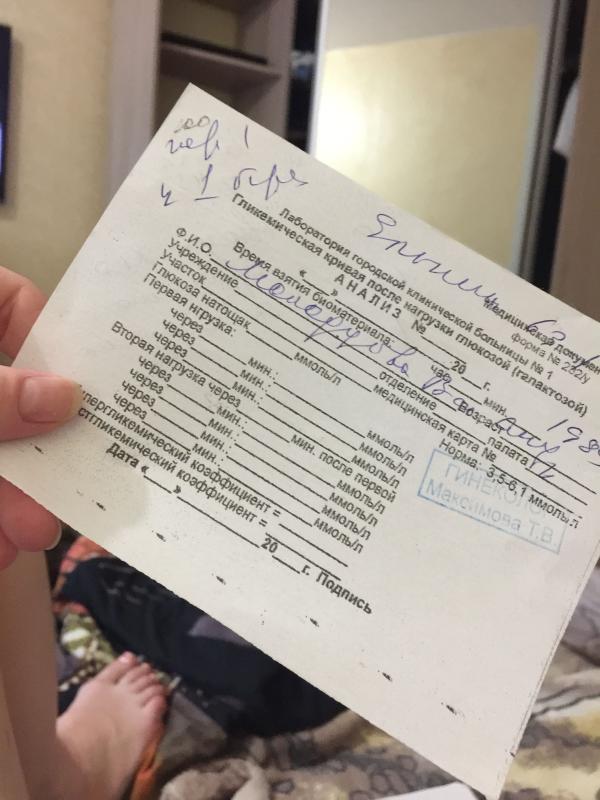 Медицинская документ
форма № 232N
Лаборатория городской клинической больницы № 1
Гликемическая кривая после нагрузки глюкозой (галактозой)
АНАЛИЗ №
« » 20 г.
Время взятия биоматериала: час. мин.
Ф.И.О. Возраст
Учреждение отделение палата
Участок медицинская карта №
Глюкоза натощак ммоль/л Норма: 3,5-6,1 ммоль/л
Первая нгрузка:
через мин.: ммоль/л
через мин.: ммоль/л
через мин.: ммоль/л
Вторая нагрузка через мин. после первой
через мин.: ммоль/л
через мин.: ммоль/л
через мин.: ммоль/л
пергликемический коэффициент =
стгликемический коэффициент =
Дата « » 20 г. Подпись
ГИНЕКОЛО
Максимова Т.В.